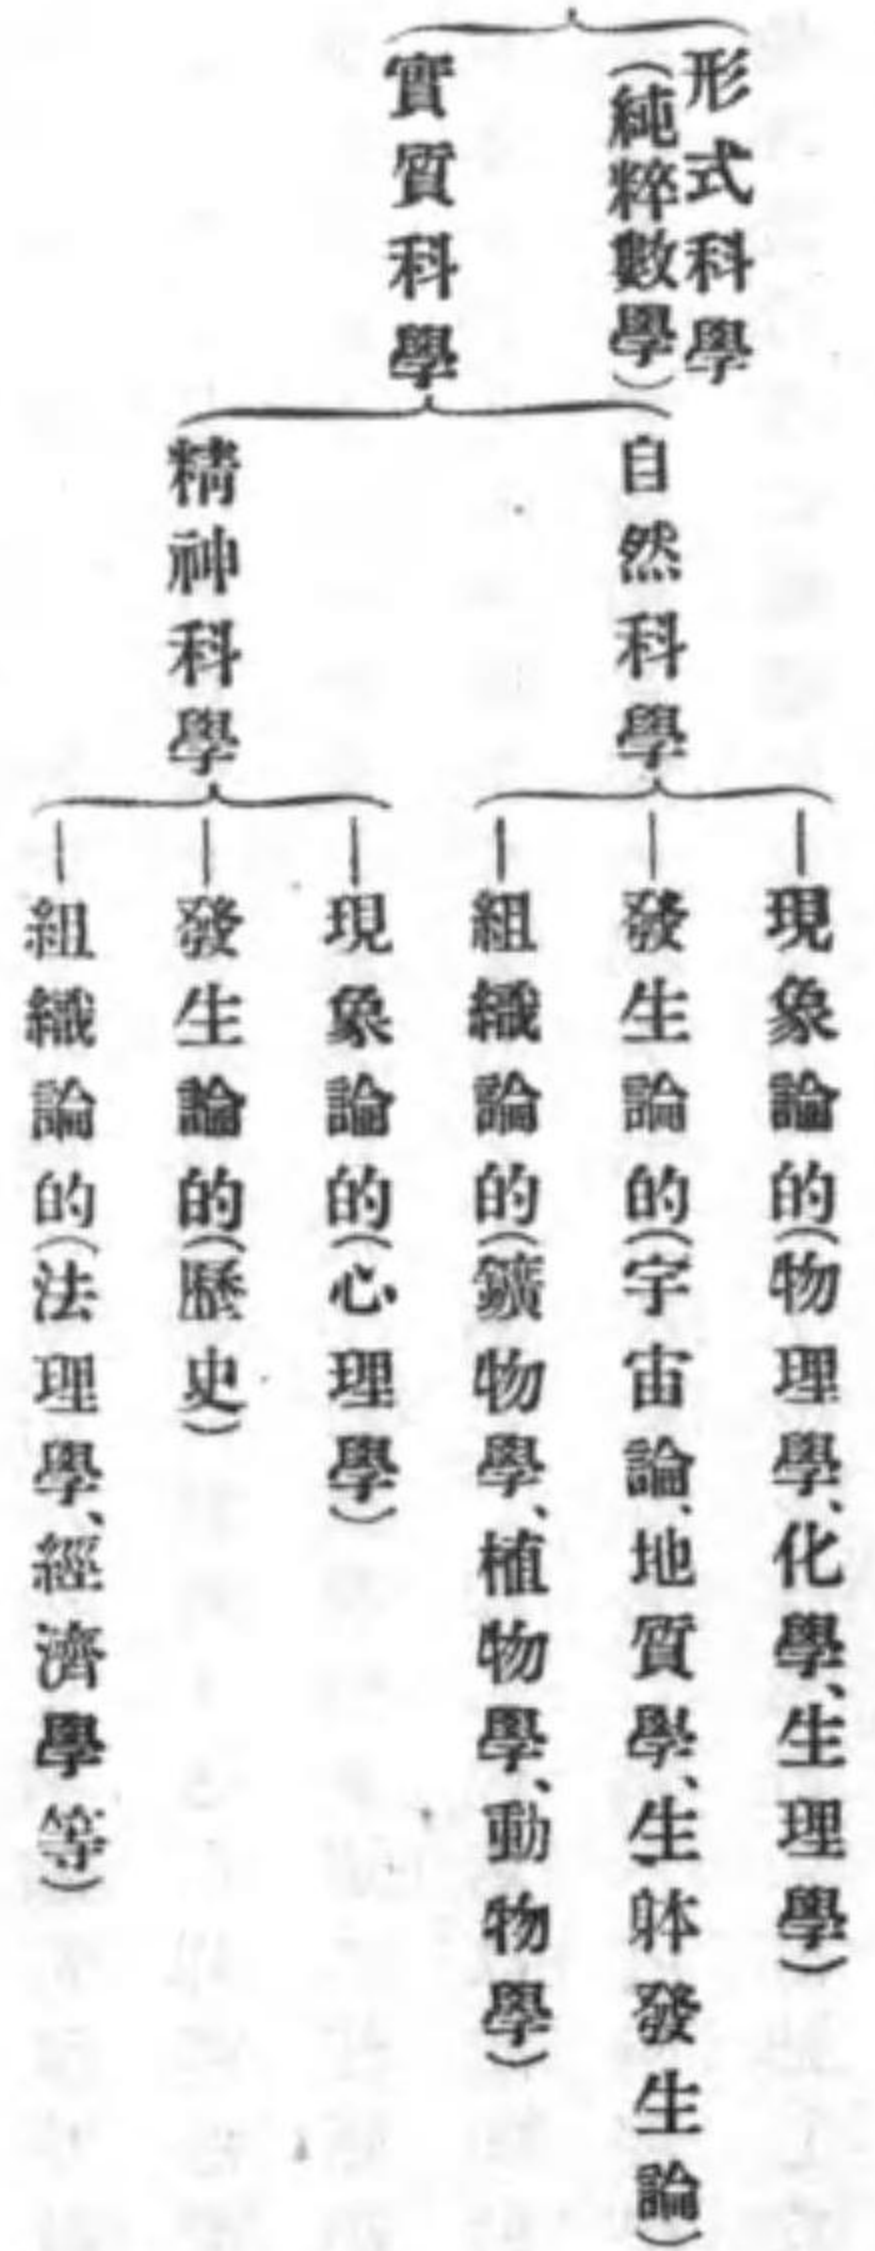 形式科學
(純粹數學)
實質科學
自然科學
精神科學
現象論的(物理學、化學、生理學)
發生論的(宇宙論、地質學、生躰發生論)
組織論的(鑛物學、植物學、動物學)
現象論的(心理學)
發生論的(歷史)
組織論的(法理學、經濟學等)